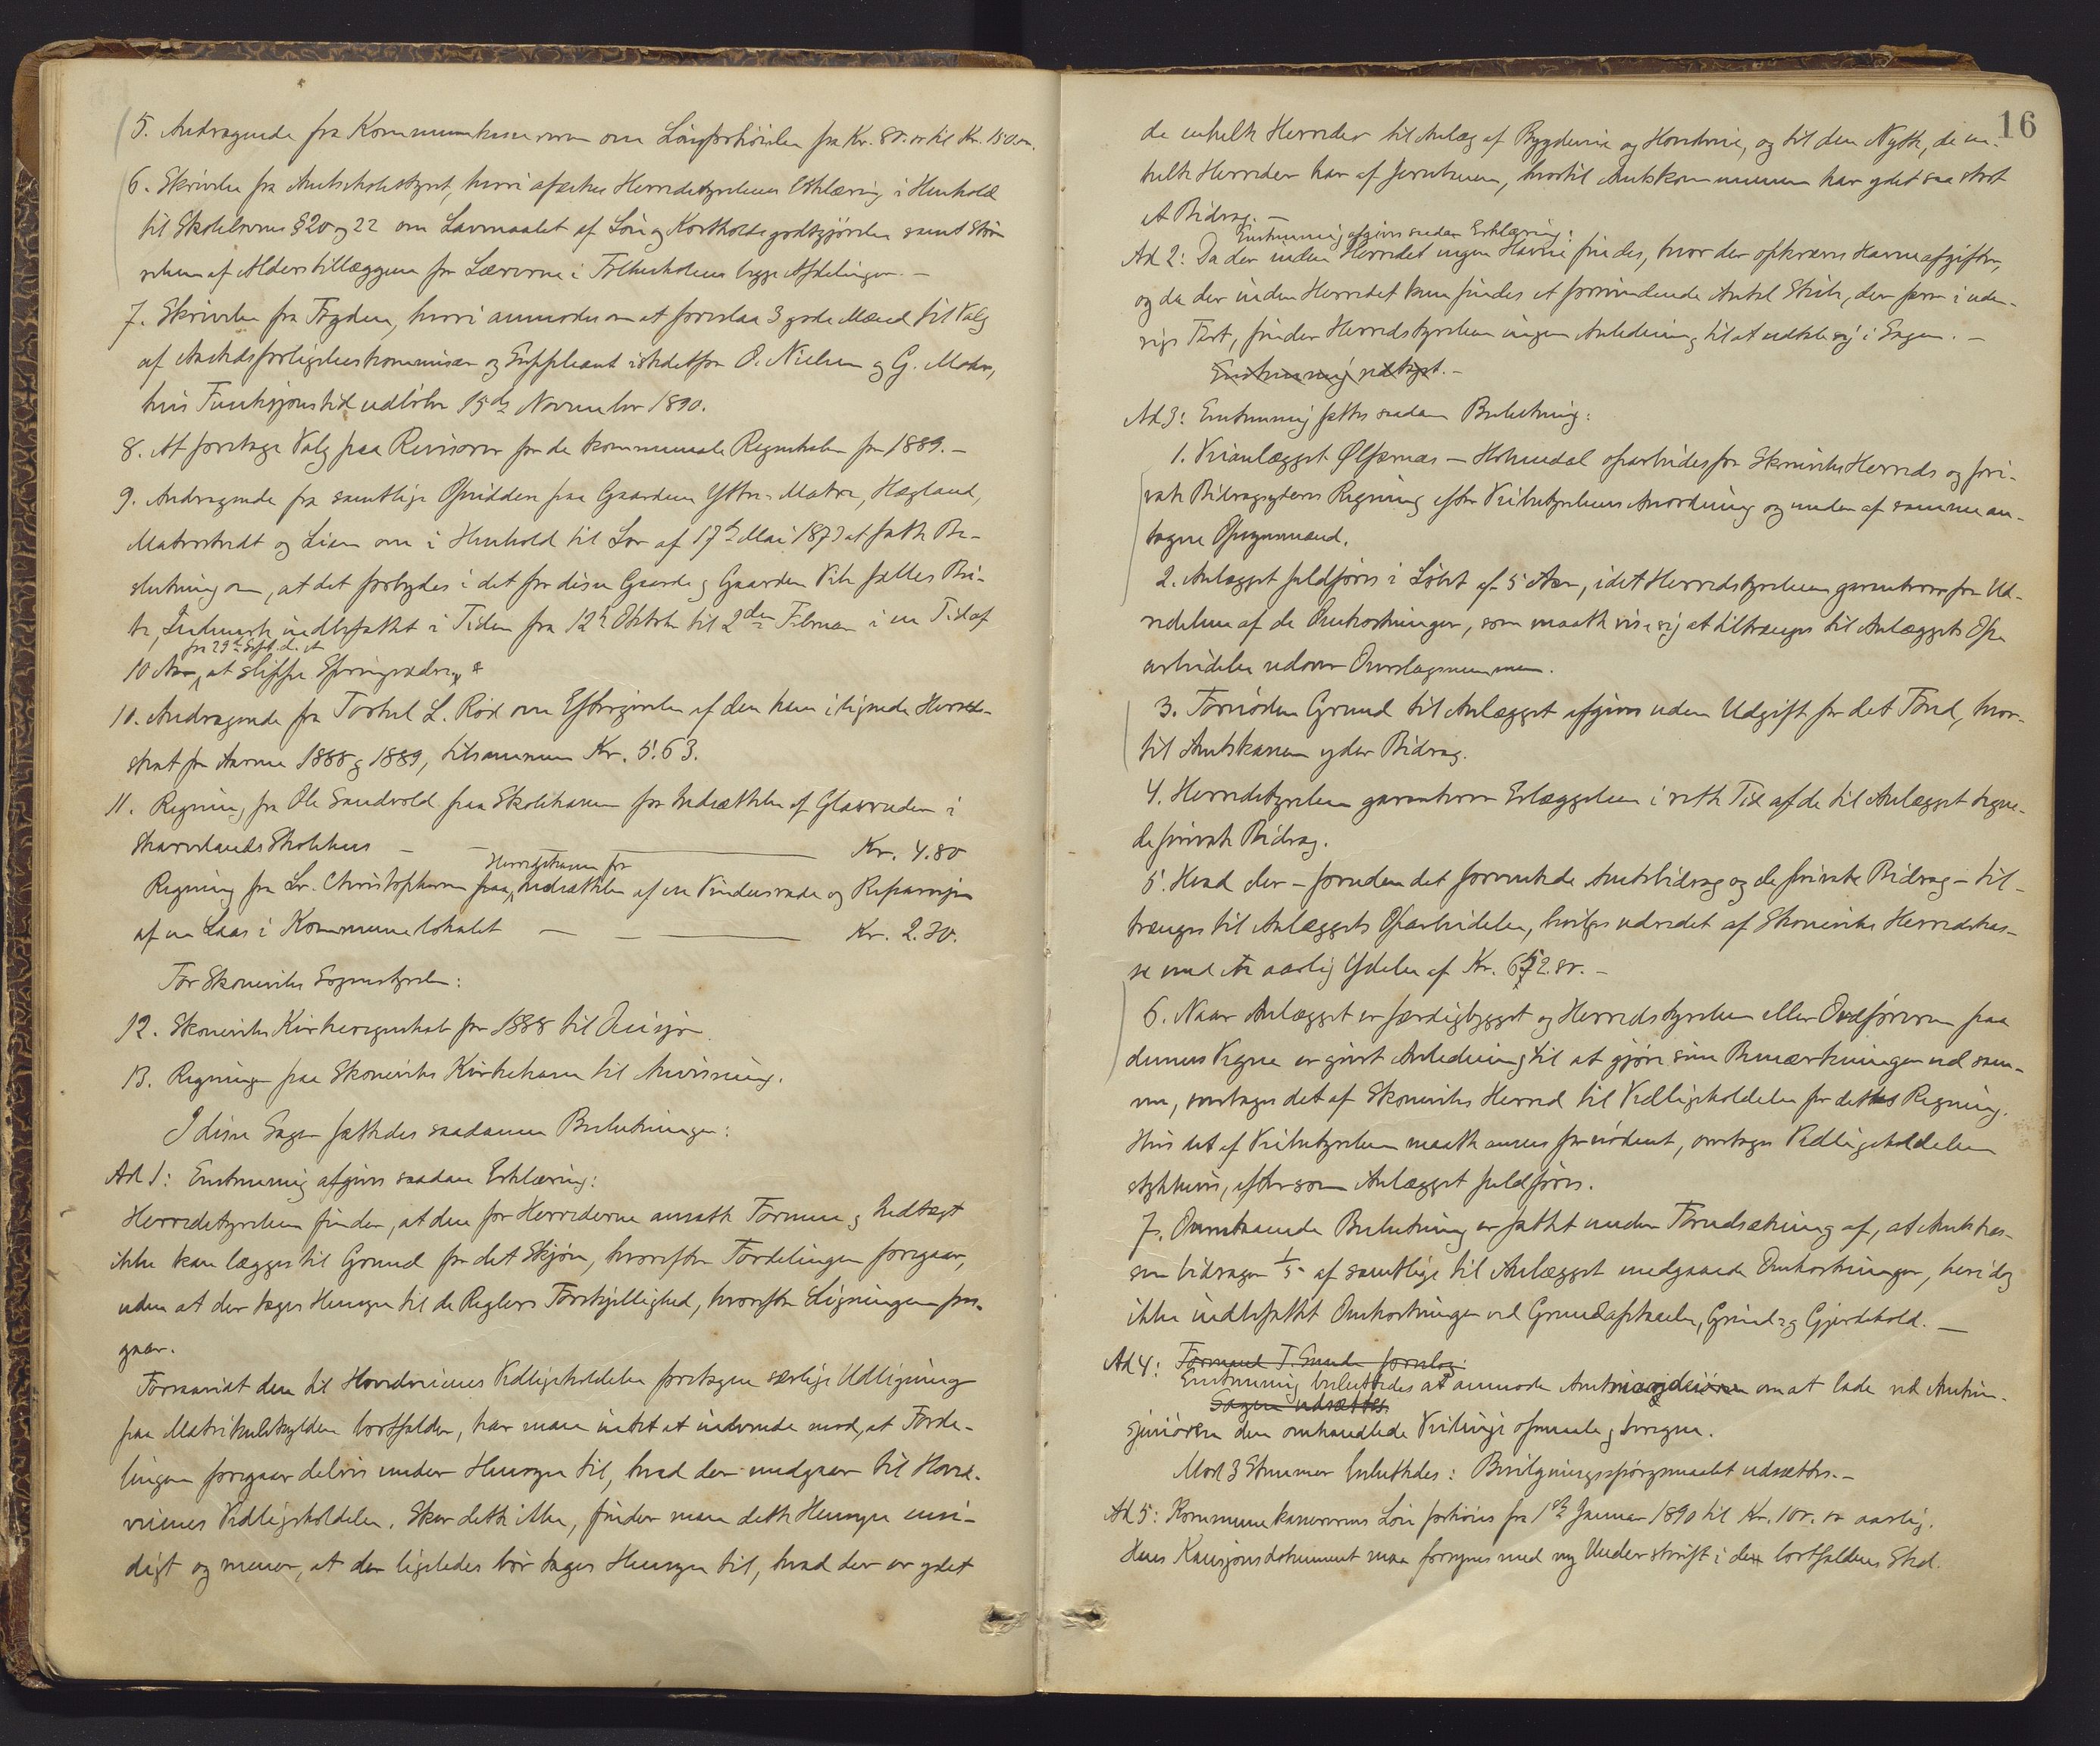 5. Andragende fra Kommunekassereren om Lønsforhøielse fra Kr. 80.00 til Kr. 150.00.
6. Skrivelse fra Amtsskolestyret, hvori afæskes Herredsstyrelsens Erklæring i Henhold
til Skolelovens § 20 og 22 om Lavmaalet af Løn og Kostholdsgodtgjørelse samt Stør-
relsen af Alderstillæggene for Lærerne i Folkeskolens begge Afdelinger. —
7. Skrivelse fra Fogden, hvori anmodes om at foreslaa 3 gode Mænd til Valg
af Forligelseskommissær og Suppleant istedetfor O. Nielsen og G. Matre,
hvis Funktsjonstid udløber 15de November 1890.
8. At foretage Valg paa Revisorer for de kommunale Regnskaber for 1889. —
9. Andragende fra samtlige Opsiddere paa Gaardene Yttre-Matre, Hægland,
Matrestvedt og Lien om i Henhold til Lov af 17de Mai 1873 at fatte Be-
slutning om, at det forbydes i det for disse Gaarde og Gaarden Vik fælles Bei-
te, Indmark indbefattet i Tiden fra 12te Oktober til 2den Februar i en Tid af
fra 29de Septb. d. A.
10 Aar, at slippe Springvædre.
10. Andragende fra Torkel L. Rød om Eftergivelse af den ham ilignede Herreds-
skat for Aarene 1888 og 1889, tilsammen Kr. 5.63.
11. Regning fra Ole Sandvold paa Skolekassen for Indsættelse af Glasruder i
Skarvelands Skolehus — Kr. 4.80
Herredskassen for
Regning fra Sr. Christophersen paa Indsættelse af en Vinduesrude og Reparasjon
af en Laas i Kommunelokalet — — Kr. 2.70.
For Skonevik Sognestyrelse:
12. Skoneviks Kirkeregnskab for 1888 til Desisjon
13. Regninger paa Skoneviks Kirkekasse til Anvisning.
I disse Sager fattedes saadanne Beslutninger:
Ad 1: Enstemmig afgives saadan Erklæring:
Herredsstyrelsen finder, at den for Herrederne ansatte Formue og Indtægt
ikke kan lægges til Grund for det Skjøn, hvorefter Fordelingen foregaar,
uden at der tages Hensyn til de Reglers Forskjellighed, hvorefter Ligningen fore-
gaar.
Forsaavidt den til Hovedveienes Vedligeholdelse foretagne særlige Udligning
paa Matrikulskylden bortfalder, har man intet at indvende mod, at Forde-
lingen foregaar delvis under Hensyn til, hvad der medgaar til Hoved-
veienes Vedligeholdelse. Sker dette ikke, finder man dette Hensyn ensi-
digt og mener, at der ligeledes bør tages Hensyn til, hvad der er ydet
16
de enkelte Herreder til Anlæg af Bygdeveie og Hovedveie, og til den Nytte, de en-
kelte Herreder har af Jernbanen, hvortil Amtskommunen har ydet saa stort
et Bidrag. —
Enstemmig afgives saadan Erklæring:
Ad 2: Da der inden Herredet ingen Havne findes, hvor der opkræves Havneafgifter,
og da der inden Herredet kun findes et forsvindende Antal Skibe, der farer i uden-
rigs Fart, finder Herredsstyrelsen ingen Anledning til at udtale sig i Sagen. —
Enstemmig vedtaget. —
Ad 3: Enstemmig fattes saadan Beslutning:
1. Veianlægget Ølfærnæs — Holmedal oparbeides for Skoneviks Herreds og pri-
vate Bidragyderes Regning efter Veibestyrelsens Anordning og under af samme an-
tagne Opsynsmænd.
2. Anlægget fuldføres i Løbet af 5 Aar, idet Herredsstyrelsen garanterer for Ud-
redelsen af de Omkostninger, som maatte vise sig at tiltrænges til Anlæggets Op-
arbeidelse udover Overslagssummen.
3. Fornøden Grund til Anlægget afgives uden Udgift for det Fond, hvor-
til Amtskassen yder Bidrag.
4. Herredsstyrelsen garanterer Erlæggelsen i rette Tid af de til Anlægget tegne-
de private Bidrag.
5. Hvad der — foruden det forventede Amtsbidrag og de private Bidrag — til-
trænges til Anlæggets Oparbeidelse, hvilges udredet af Skoneviks Herredskas-
se med en aarlig Ydelse af Kr. 652.80. —
6. Naar Anlægget er færdigbygget og Herredsstyrelsen eller Ordføreren paa
dennes Vegne er givet Anledning til at gjøre sine Bemærkninger ved sam-
me, overtages det af Skoneviks Herred til Vedligeholdelse for dettes Regning.
Hvis det af Veibestyrelsen maatte ansees fornødent, overtages Vedligeholdelsen
stykkevis, eftersom Anlægget fuldføres.
7. Ovenstaaende Beslutning er fattet under Forudsætning af, at Amtskas-
sen bidrager 1/5 af samtlige til Anlægget medgaaende Omkostninger, heri dog
ikke indbefattet Omkostninger ved Grundafstaaelse, Grind- og Gjerdehold. —
Ad 4: Formand T. Sunde foreslog:
Enstemmig besluttedes at anmode Amtmanden om at lade ved Amtsin-
Sagen udsættes.
sjeniøren den omhandlede Veilinje opmaale og beregne.
Mod 3 Stemmer besluttedes: Bevilgningsspørgsmaalet udsættes. —
Ad 5: Kommunekassererens Løn forhøies fra 1ste Januar 1890 til Kr. 100.00 aarlig.
Hans Kausjonsdokument maa forsynes med ny Underskrift i den bortfaldnes Sted.